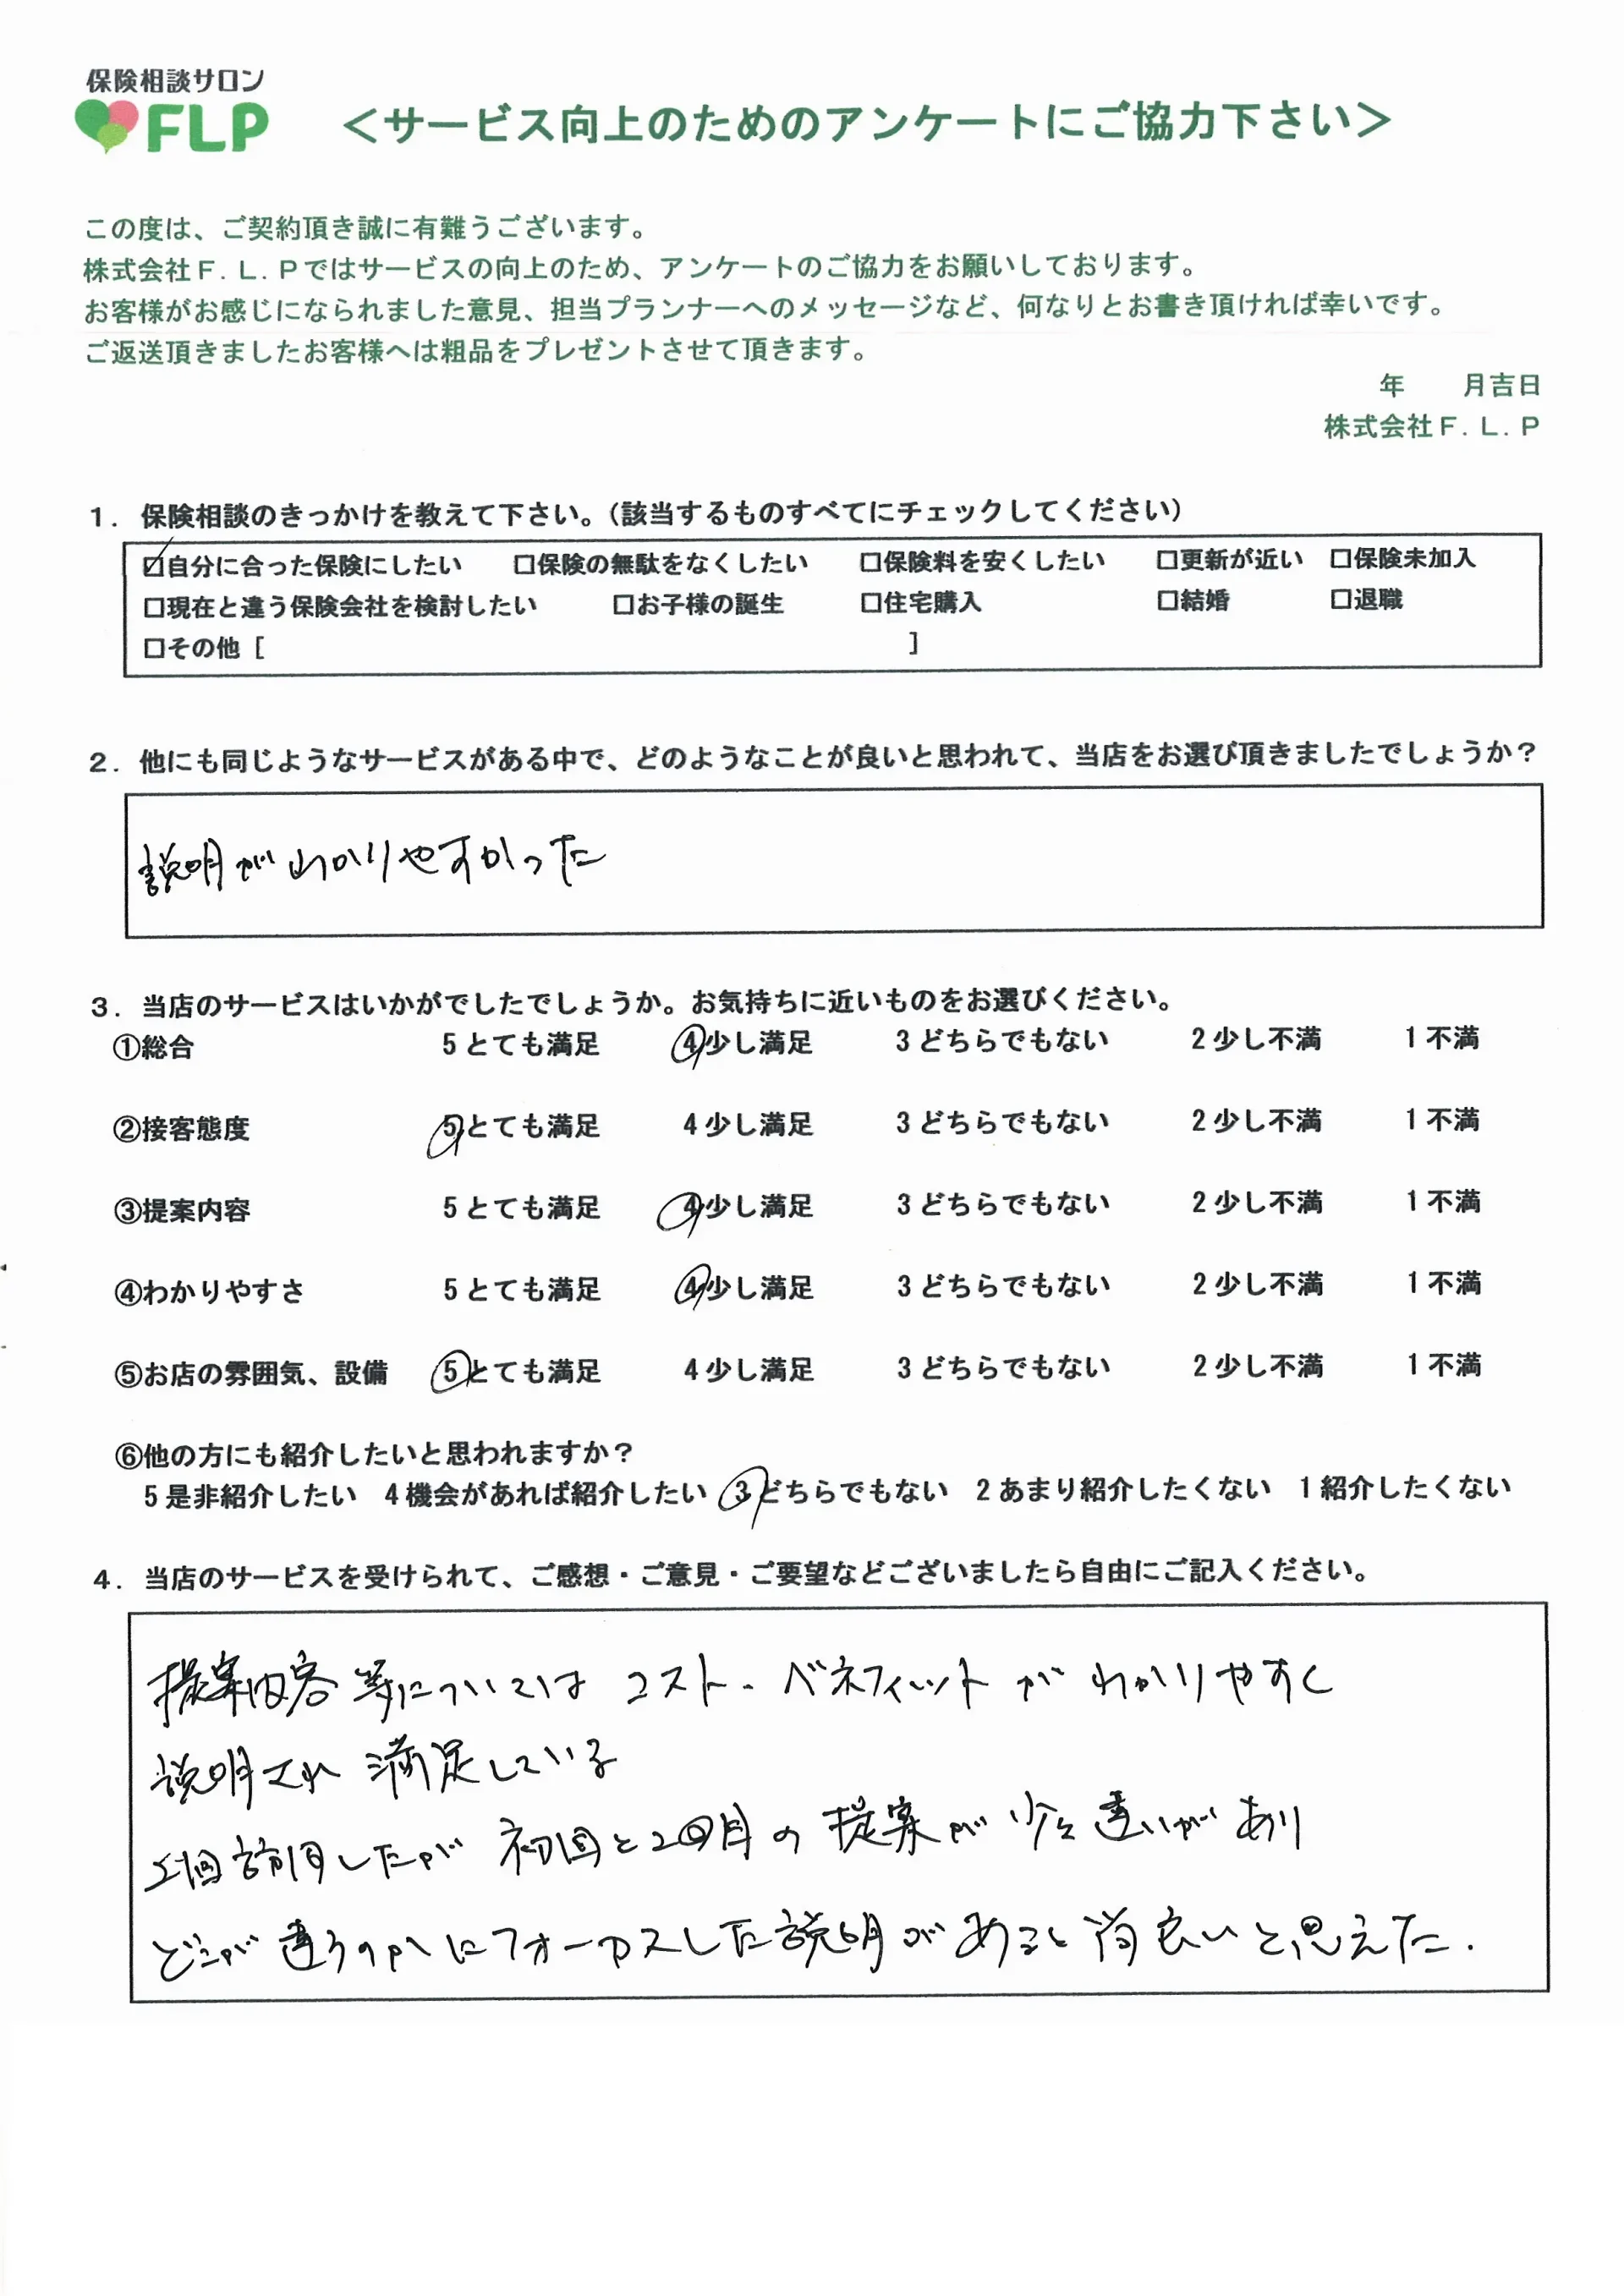 保険相談サロン
FLP
＜サービス向上のためのアンケートにご協力下さい＞
この度は、ご契約頂き誠に有難うございます。
株式会社Ｆ．Ｌ．Ｐではサービスの向上のため、アンケートのご協力をお願いしております。
お客様がお感じになられました意見、担当プランナーへのメッセージなど、何なりとお書き頂ければ幸いです。
ご返送頂きましたお客様へは粗品をプレゼントさせて頂きます。
年　　月吉日
株式会社Ｆ．Ｌ．Ｐ
１．保険相談のきっかけを教えて下さい。（該当するものすべてにチェックしてください）
☑自分に合った保険にしたい　□保険の無駄をなくしたい　□保険料を安くしたい　□更新が近い　□保険未加入
□現在と違う保険会社を検討したい　□お子様の誕生　□住宅購入　□結婚　□退職
□その他［　　　］
２．他にも同じようなサービスがある中で、どのようなことが良いと思われて、当店をお選び頂きましたでしょうか？
説明がわかりやすかった
３．当店のサービスはいかがでしたでしょうか。お気持ちに近いものをお選びください。
①総合　5 とても満足　4 少し満足　3 どちらでもない　2 少し不満　1 不満
②接客態度　5 とても満足　4 少し満足　3 どちらでもない　2 少し不満　1 不満
③提案内容　5 とても満足　4 少し満足　3 どちらでもない　2 少し不満　1 不満
④わかりやすさ　5 とても満足　4 少し満足　3 どちらでもない　2 少し不満　1 不満
⑤お店の雰囲気、設備　5 とても満足　4 少し満足　3 どちらでもない　2 少し不満　1 不満
⑥他の方にも紹介したいと思われますか？
5 是非紹介したい　4 機会があれば紹介したい　3 どちらでもない　2 あまり紹介したくない　1 紹介したくない
４．当店のサービスを受けられて、ご感想・ご意見・ご要望などございましたら自由にご記入ください。
提案内容等については コスト・ベネフィットが わかりやすく
説明され 満足している
2回訪問したが 初回と2回目の提案が 少々違いがあり
どこが違うのかにフォーカスした説明があると尚良いと思えた.